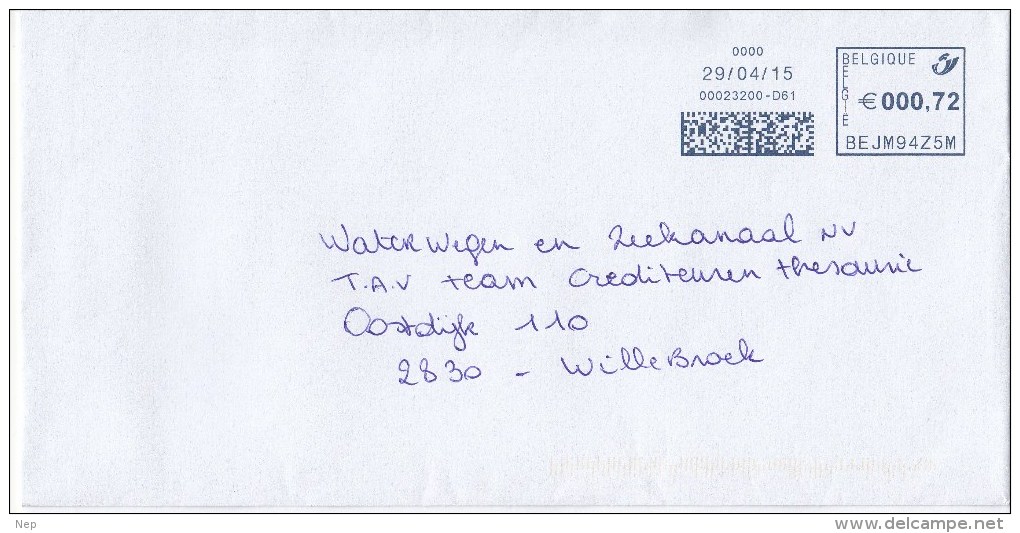 0000
29/04/15
00023200-D61
BELGIQUE
BELGIË
€000,72
BEJM94Z5M
Waterwegen en Zeekanaal NV
T.A.V team Crediteuren thesaurie
Oostdijk 110
2830 - WilleBroek
Nep
www.delcampe.net